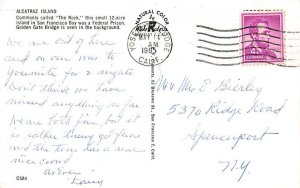 ALCATRAZ ISLAND
Commonly called "The Rock," this small 12-acre
island in San Francisco Bay was a Federal Prison.
Golden Gate Bridge is seen in the background.
We are out of here
and on our way to
Yosemite for 2 nights
Don't think we have
missed anything so far
We are both fine, but it
is rather tiring yet fun
and the train has a real
nice crowd
as ever
C564
NATURAL COLOR
AM
1965
CALIF.
4¢
Mr & Mrs E. Bierley
5370 Ridge Road
Spencerport
N.Y.